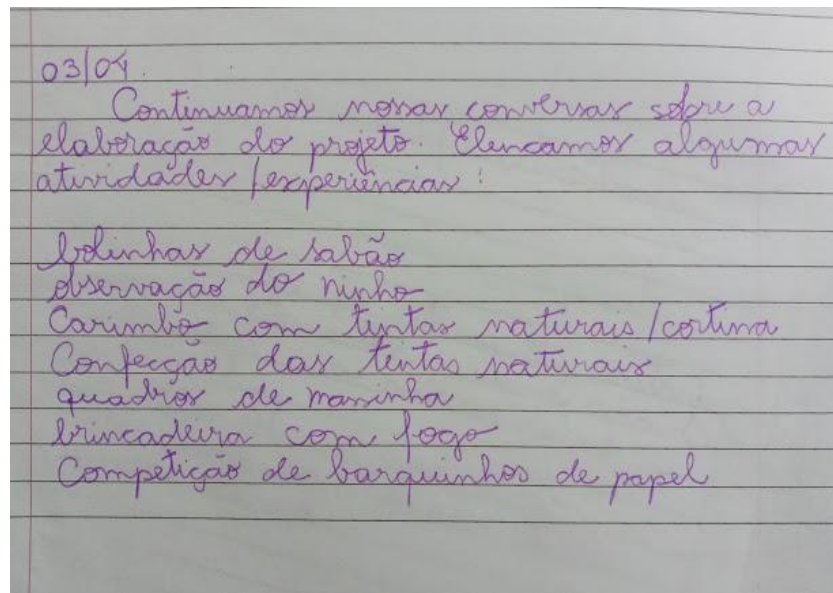 03/04.
Continuamos nossas conversas sobre a
elaboração do projeto. Elencamos algumas
atividades/experiências:
bolinhas de sabão
observação do ninho
Carimbo com tintas naturais/cortina
Confecção das tintas naturais
quadros de massinha
brincadeira com fogo
Competição de barquinhos de papel